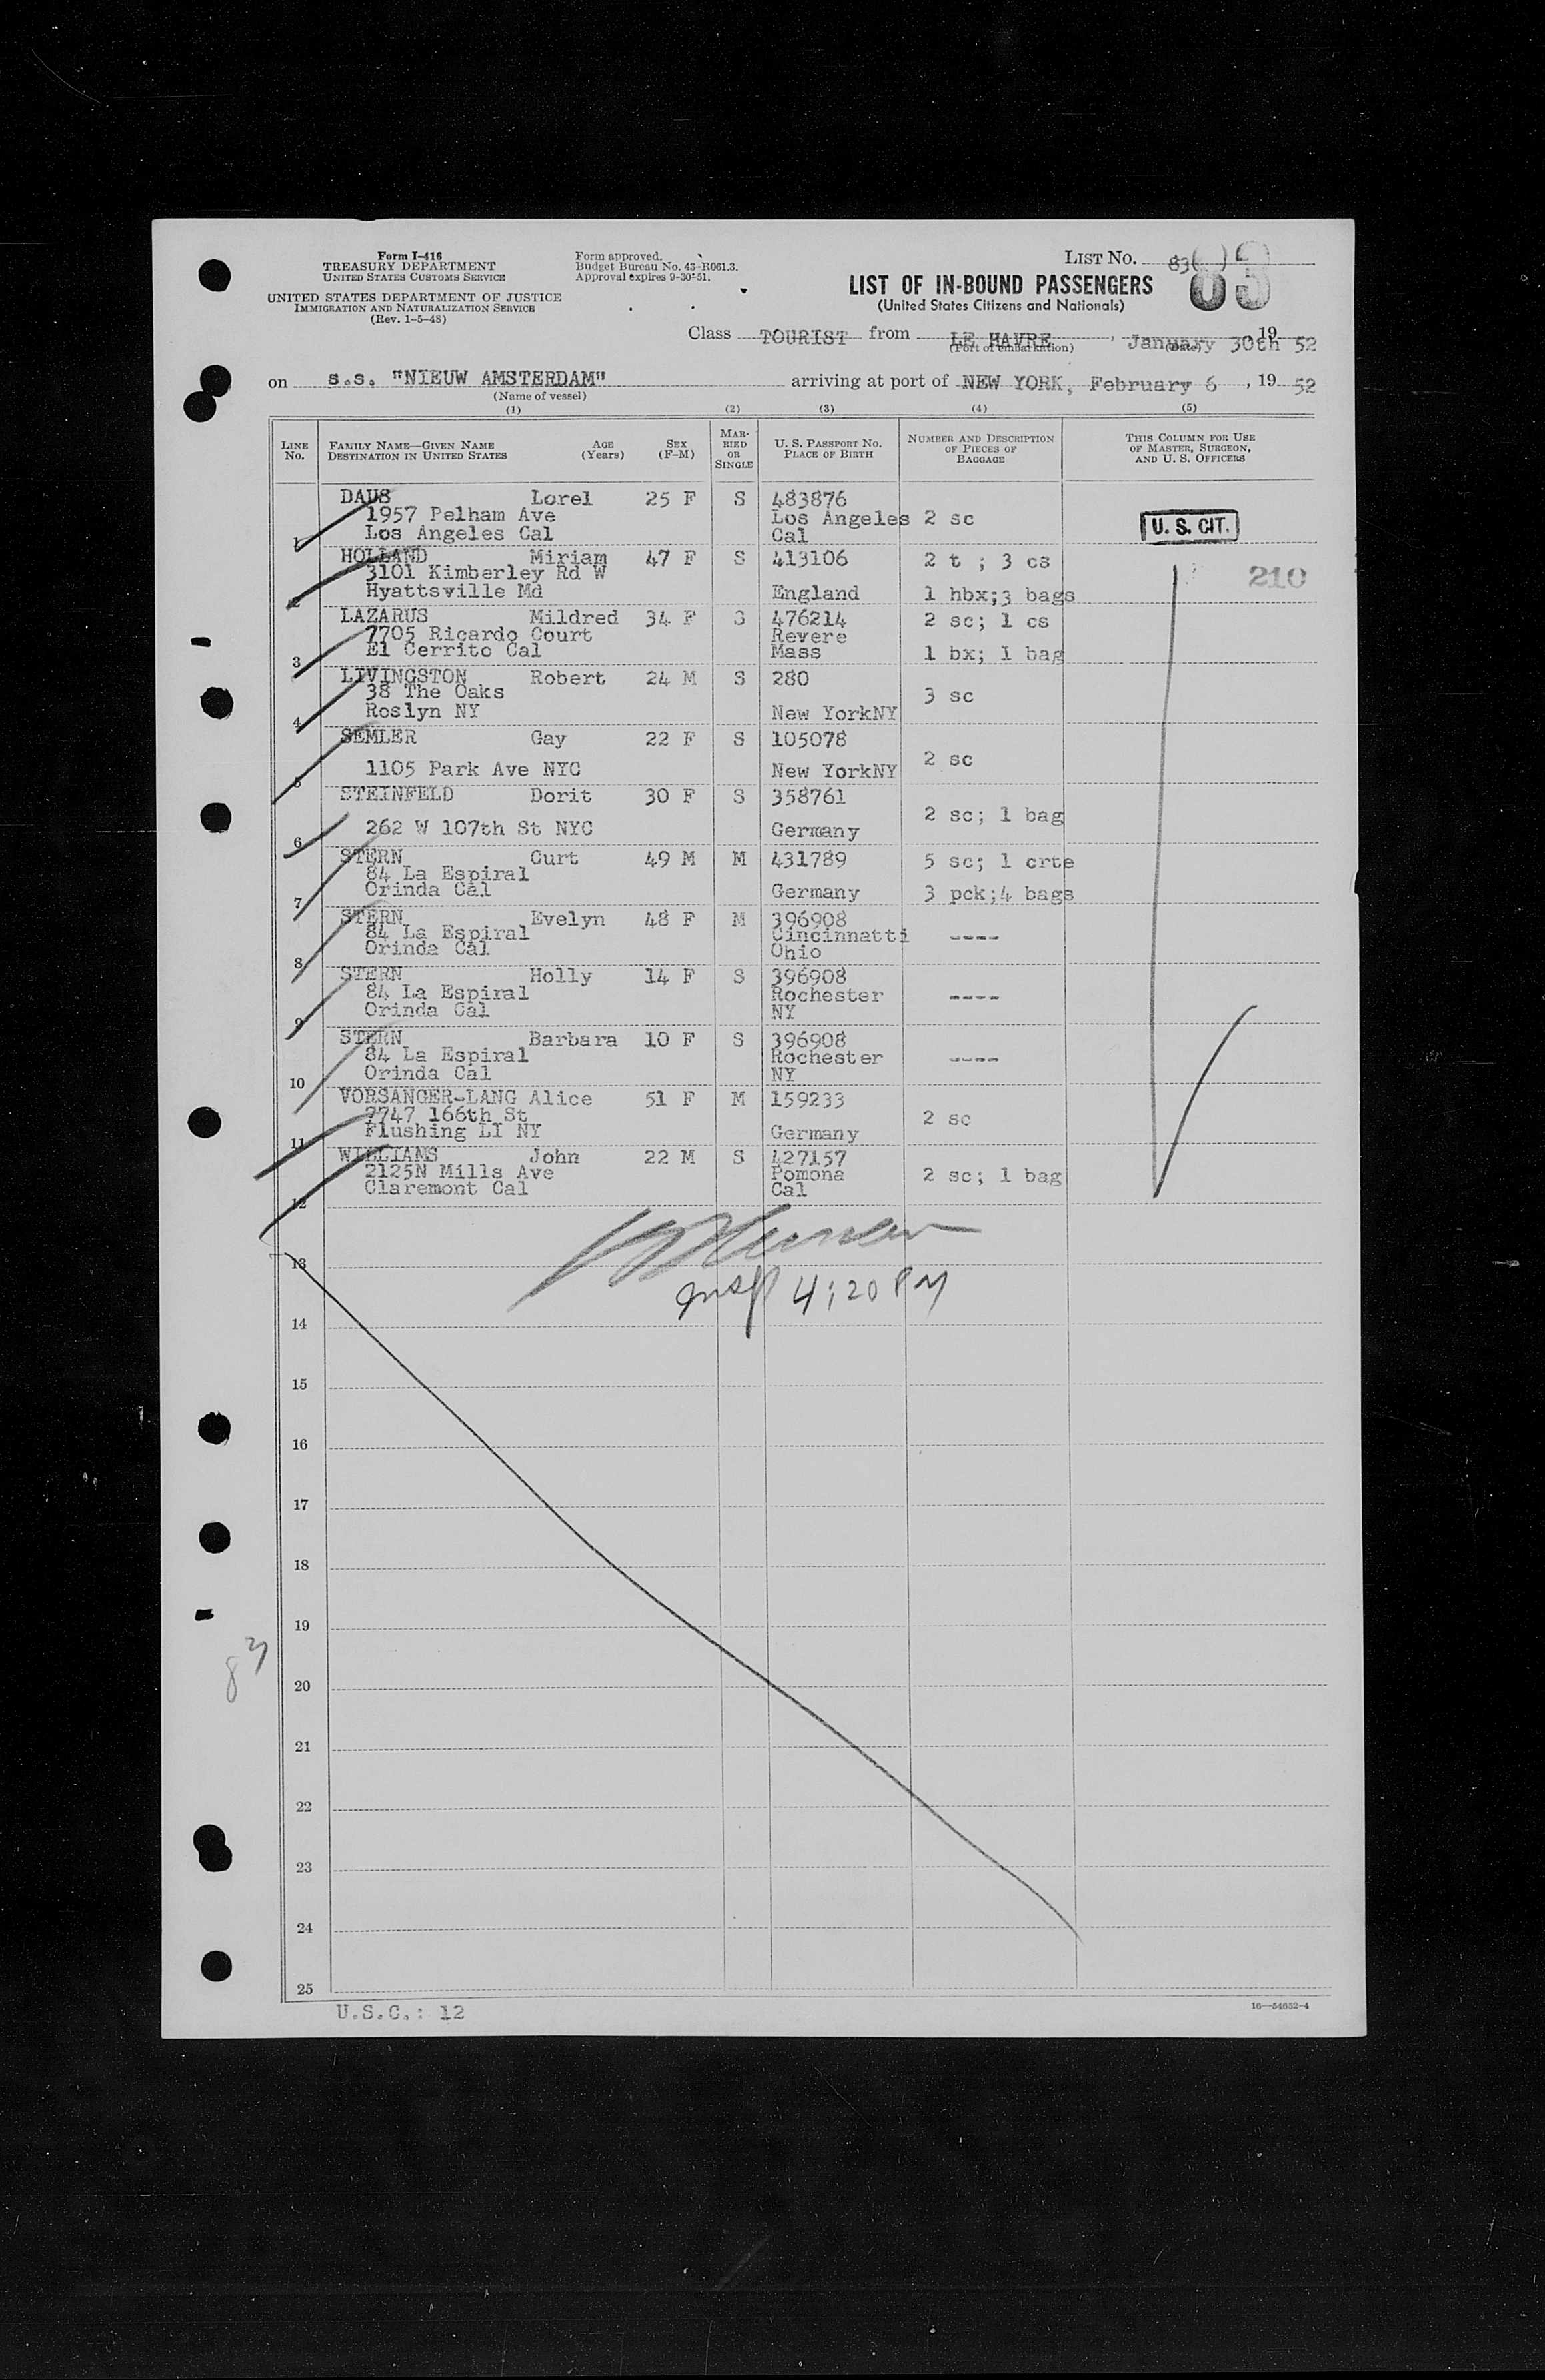 Form I-416
TREASURY DEPARTMENT
UNITED STATES CUSTOMS SERVICE
UNITED STATES DEPARTMENT OF JUSTICE
IMMIGRATION AND NATURALIZATION SERVICE
(Rev. 1-5-48)
Form approved.
Budget Bureau No. 43-R061.3.
Approval expires 9-30-51.
LIST NO. 83
83
LIST OF IN-BOUND PASSENGERS
(United States Citizens and Nationals)
Class TOURIST from LE HAVRE, January 30th 19 52
(Port of embarkation) (Date)
on s.s. "NIEUW AMSTERDAM" arriving at port of NEW YORK, February 6, 19 52
(Name of vessel)
(1) (2) (3) (4) (5)
LINE NO. FAMILY NAME—GIVEN NAME DESTINATION IN UNITED STATES AGE (Years) SEX (F-M) MARRIED OR SINGLE U. S. PASSPORT NO. PLACE OF BIRTH NUMBER AND DESCRIPTION OF PIECES OF BAGGAGE THIS COLUMN FOR USE OF MASTER, SURGEON, AND U. S. OFFICERS
DAUS Lorel 25 F S 483876
1957 Pelham Ave Los Angeles 2 sc U. S. CIT.
1 Los Angeles Cal Cal
HOLLAND Miriam 47 F S 413106 2 t ; 3 cs
3101 Kimberley Rd W 210
2 Hyattsville Md England 1 hbx;3 bags
LAZARUS Mildred 34 F S 476214 2 sc; 1 cs
7705 Ricardo Court Revere
3 El Cerrito Cal Mass 1 bx; 1 bag
LIVINGSTON Robert 24 M S 280
38 The Oaks 3 sc
4 Roslyn NY New YorkNY
SEMLER Gay 22 F S 105078
2 sc
5 1105 Park Ave NYC New YorkNY
STEINFELD Dorit 30 F S 358761
2 sc; 1 bag
6 262 W 107th St NYC Germany
STERN Curt 49 M M 431789 5 sc; 1 crte
84 La Espiral
7 Orinda Cal Germany 3 pck;4 bags
STERN Evelyn 48 F M 396908
84 La Espiral Cincinnatti ----
8 Orinda Cal Ohio
STERN Holly 14 F S 396908
84 La Espiral Rochester ----
9 Orinda Cal NY
STERN Barbara 10 F S 396908
84 La Espiral Rochester ----
10 Orinda Cal NY
VORSANGER-LANG Alice 51 F M 159233
7747 166th St 2 sc
11 Flushing LI NY Germany
WILLIAMS John 22 M S 427157
2125N Mills Ave Pomona 2 sc; 1 bag
12 Claremont Cal Cal
13
Insp 4:20 PM
14
15
16
17
18
19
83
20
21
22
23
24
25
U.S.C.: 12
16—54652-4